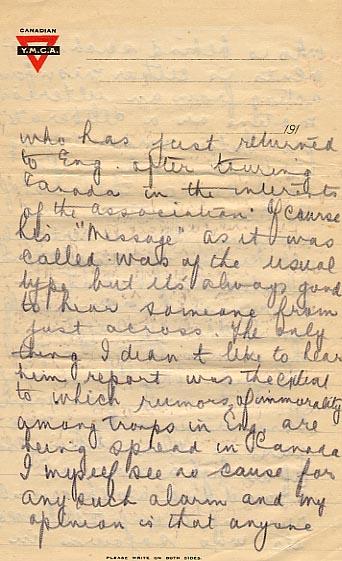 CANADIAN
Y.M.C.A.
191
who has just returned
to Eng. after touring
Canada in the interests
of the association. Of course
his "Message" as it was
called was of the usual
type but it's always good
to hear someone from
just across. The only
thing I didn't like to hear
him report was the extent
to which rumors of immorality
among troops in Eng. are
being spread in Canada
I myself see no cause for
any such alarm and my
opinion is that anyone
PLEASE WRITE ON BOTH SIDES.